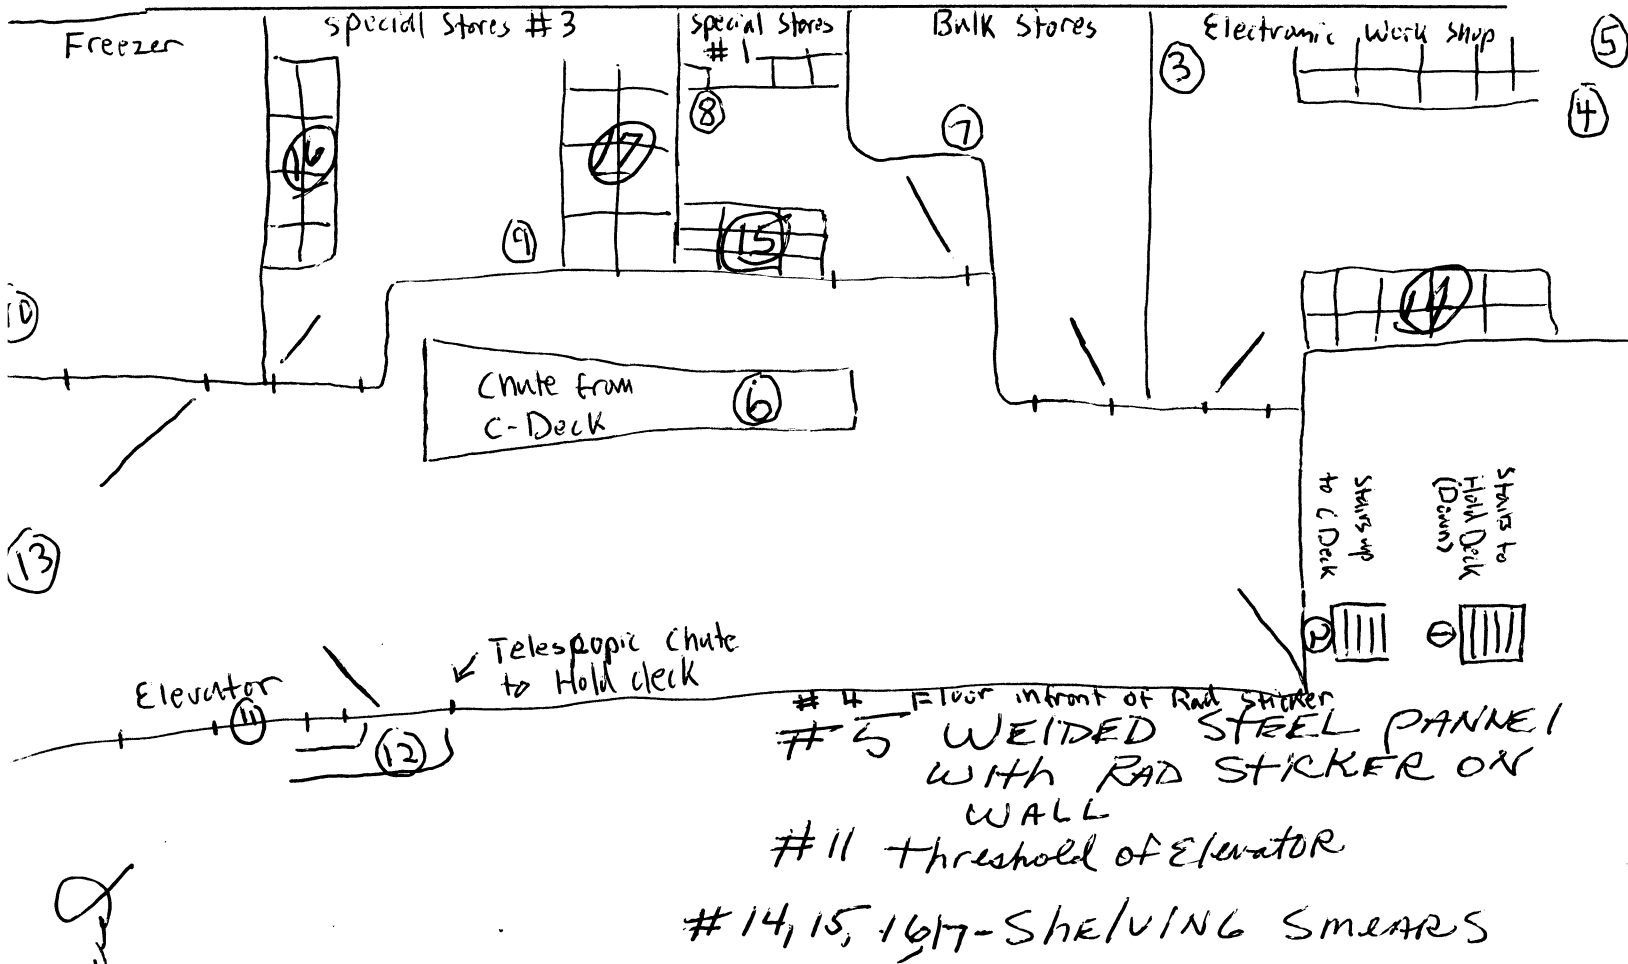 Freezer
Special Stores #3
Special Stores
#1
Bulk Stores
Electronic Work Shop
5
3
4
8
7
16
17
15
9
10
14
Chute from
C-Deck
6
Stairs up
to C Deck
Stairs to
Hold Deck
(Down)
13
2
1
Telespopic Chute
to Hold deck
Elevator
11
12
#4 Floor infront of Rad Sticker
#5 WElDED STEEL PANNEl
WITH RAD STICKER ON
WALL
#11 threshold of ElevatoR
#14, 15, 16, 17 - ShElVING SmEARS